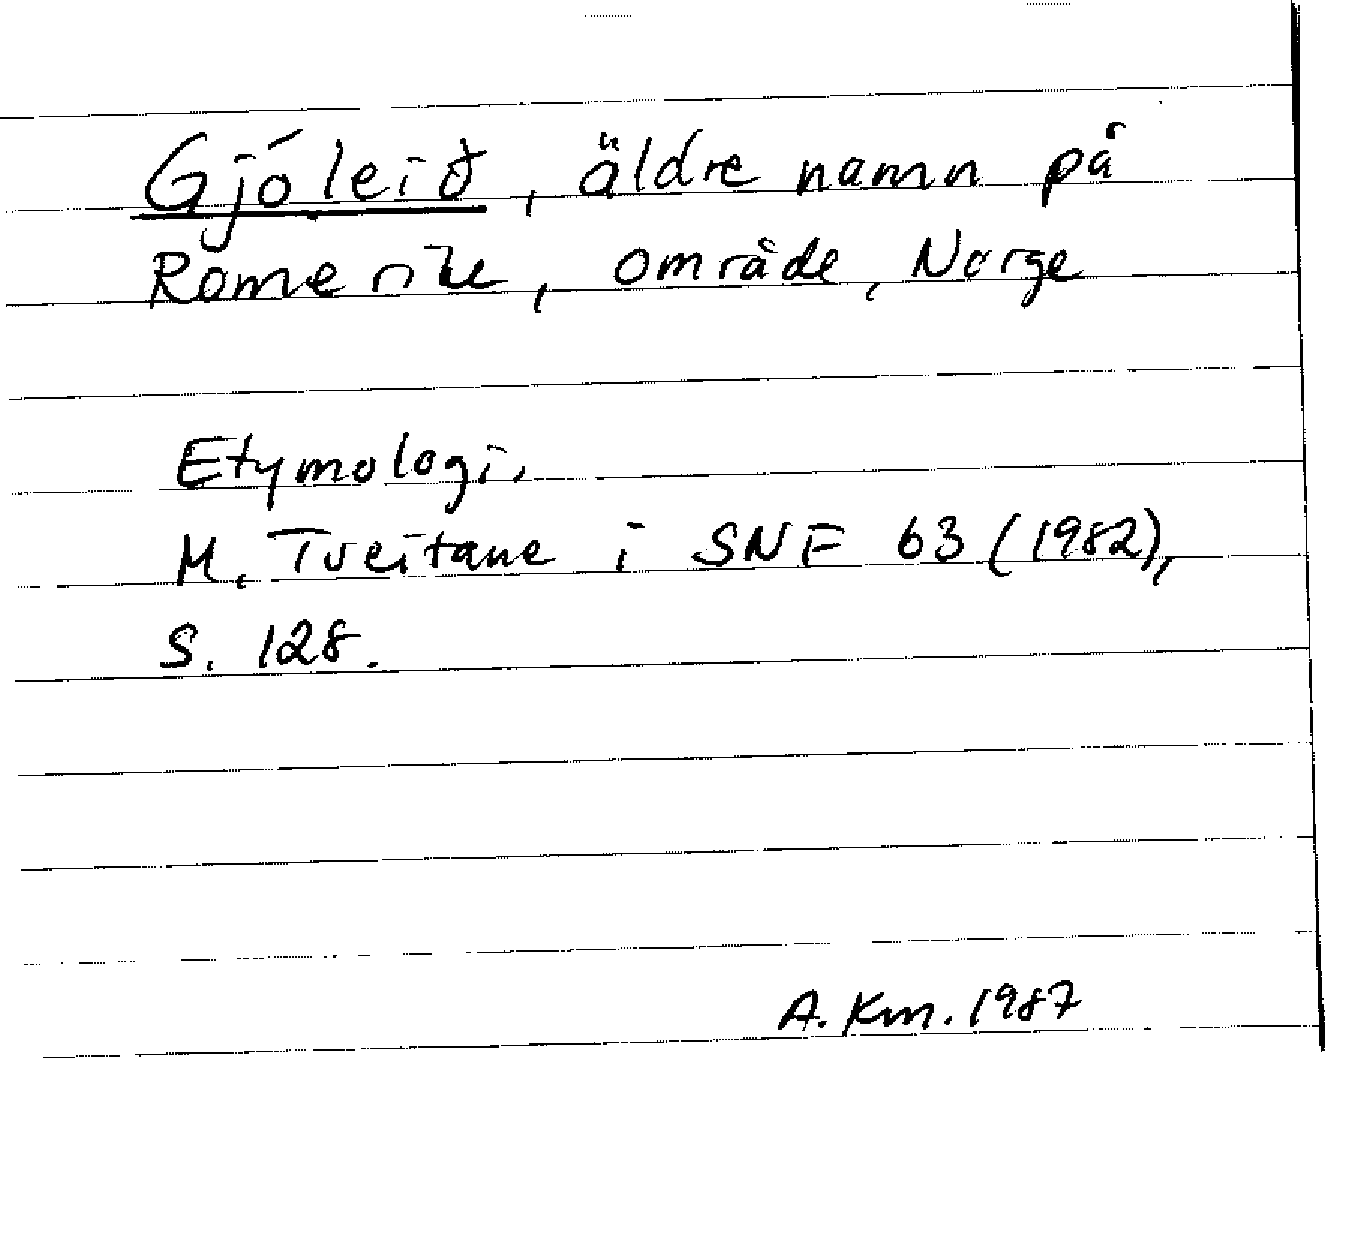 Gjóleið, äldre namn på
Romerike, område, Norge
Etymologi.
M. Tveitane i SNF 63 (1982),
S. 128.
A. Km. 1987